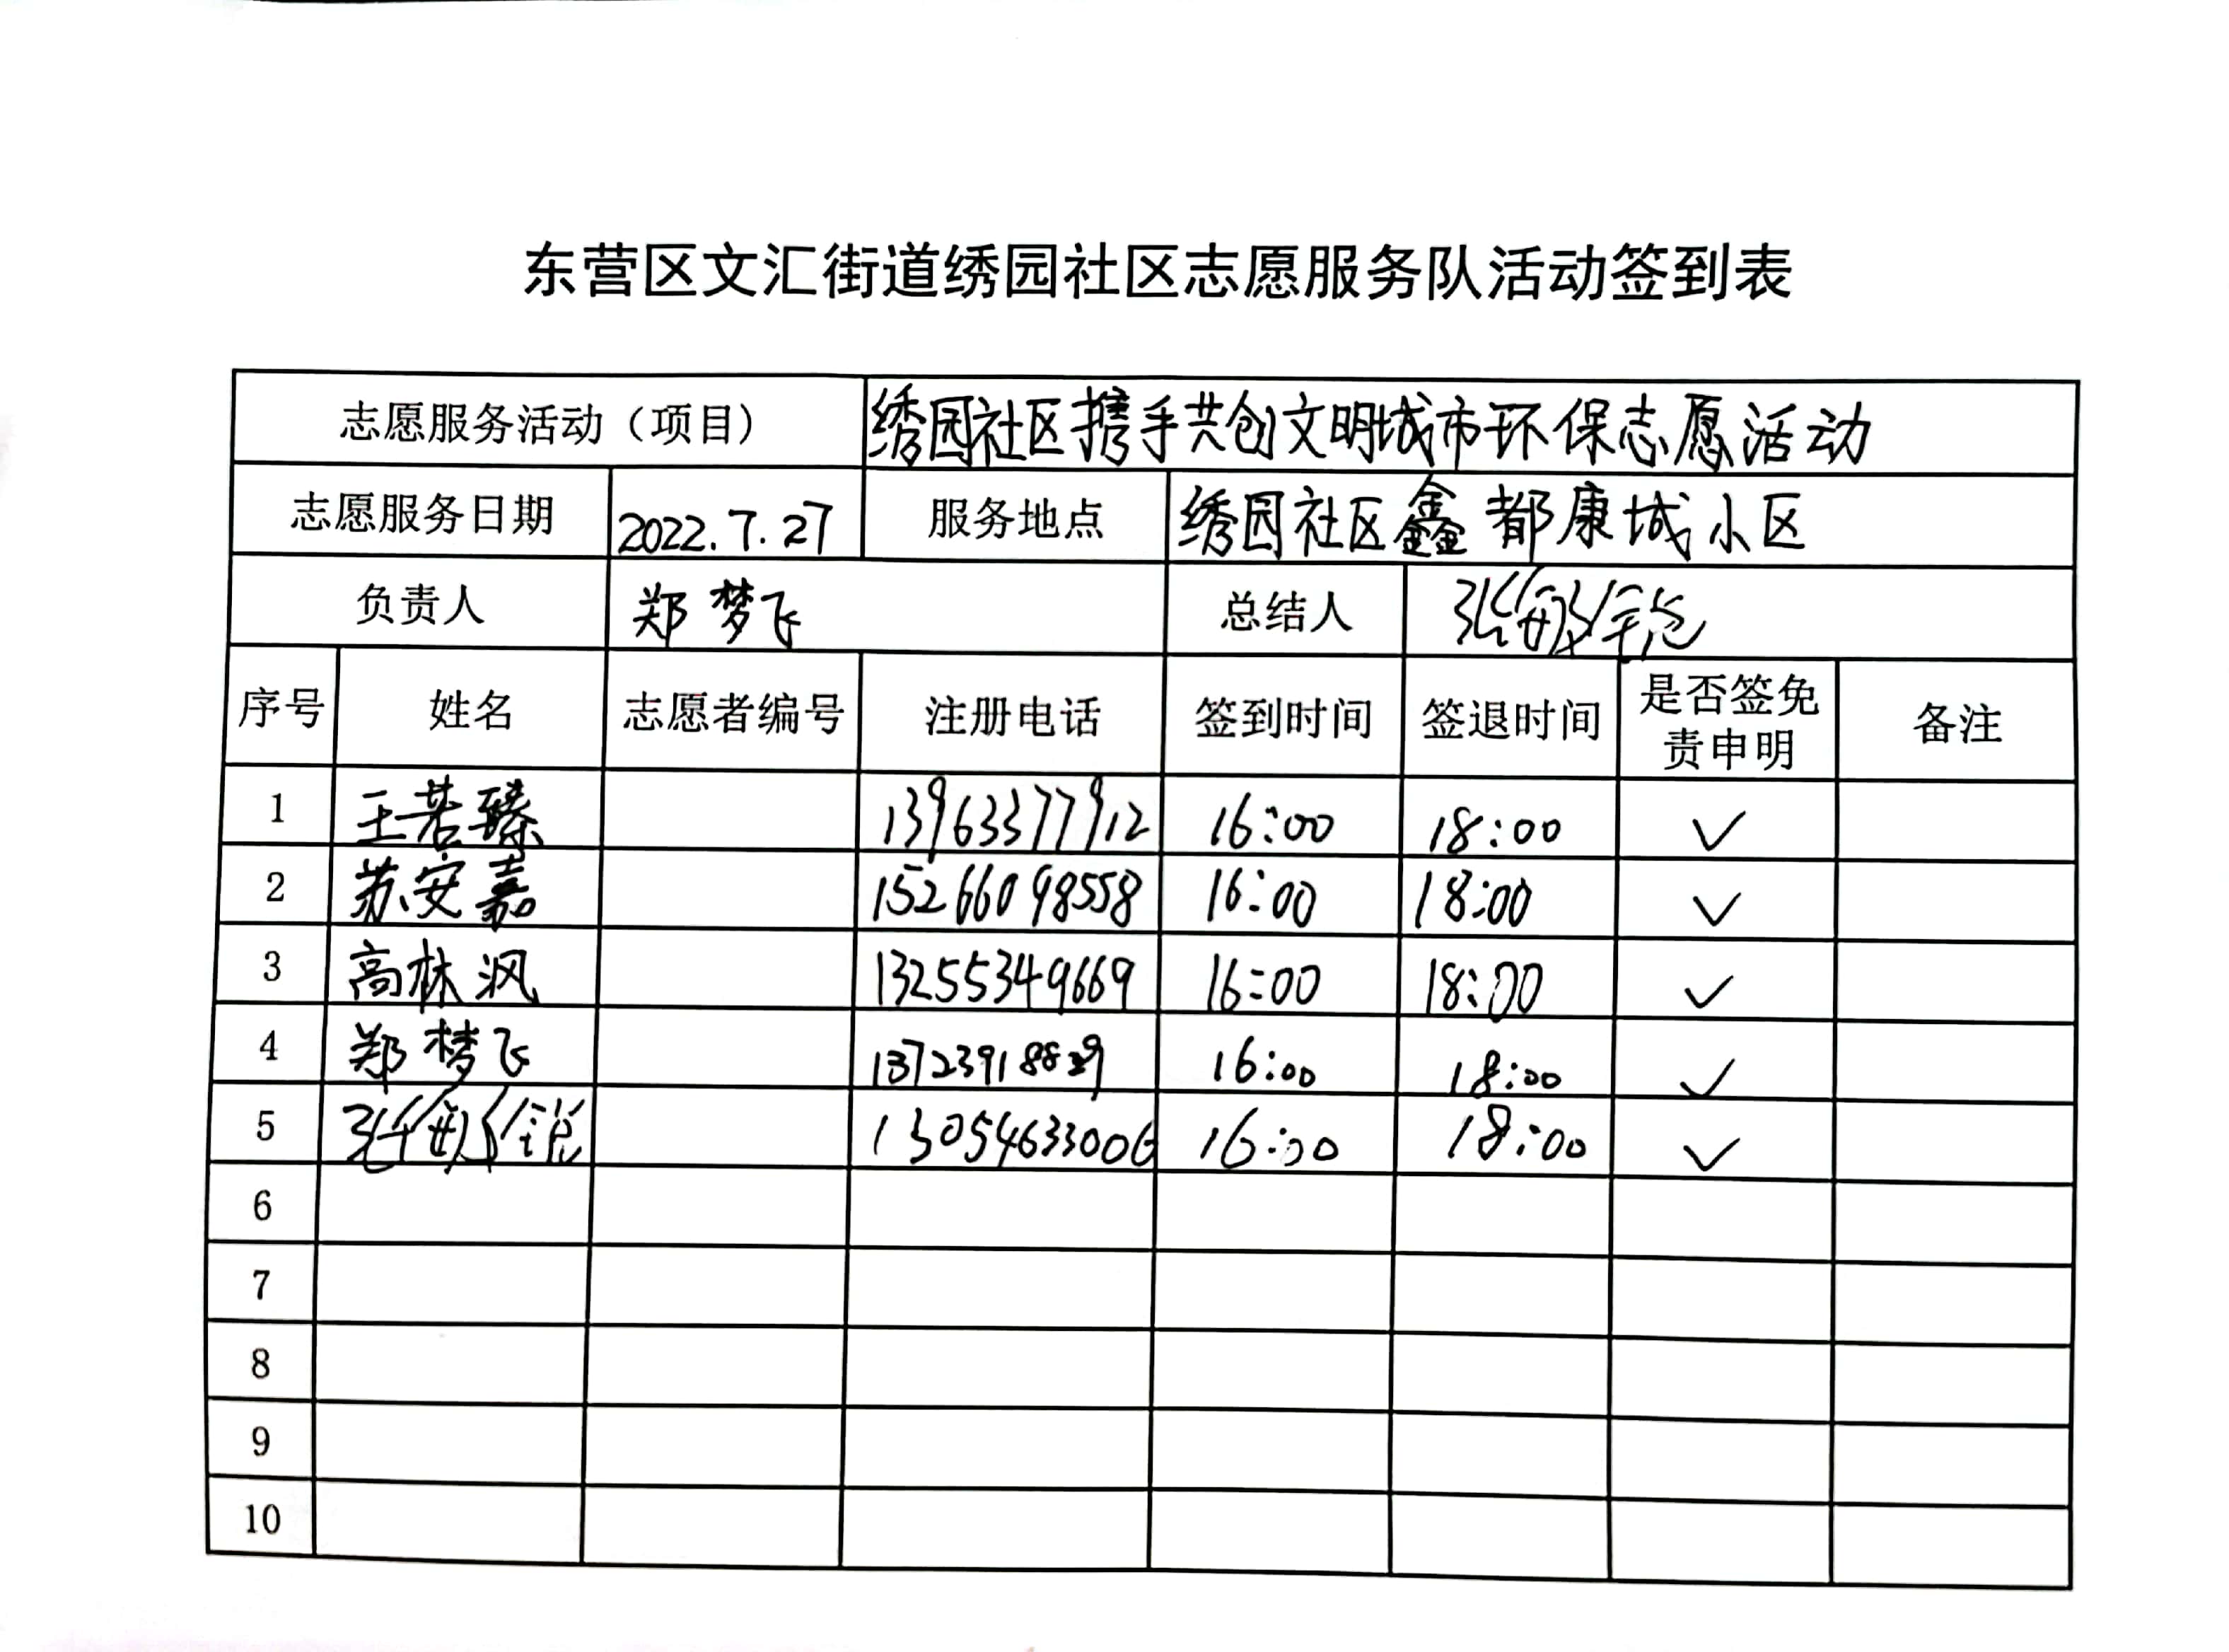 东营区文汇街道绣园社区志愿服务队活动签到表
志愿服务活动（项目） 绣园社区携手共创文明城市环保志愿活动
志愿服务日期 2022.7.27 服务地点 绣园社区鑫都康城小区
负责人 郑梦飞 总结人 张
序号 姓名 志愿者编号 注册电话 签到时间 签退时间 是否签免责申明 备注
1 王若臻 13963377912 16:00 18:00 ✓
2 苏安嘉 15266098558 16:00 18:00 ✓
3 高林沨 13255349669 16:00 18:00 ✓
4 郑梦飞 13723918829 16:00 18:00 ✓
5 张 13054633006 16:00 18:00 ✓
6
7
8
9
10